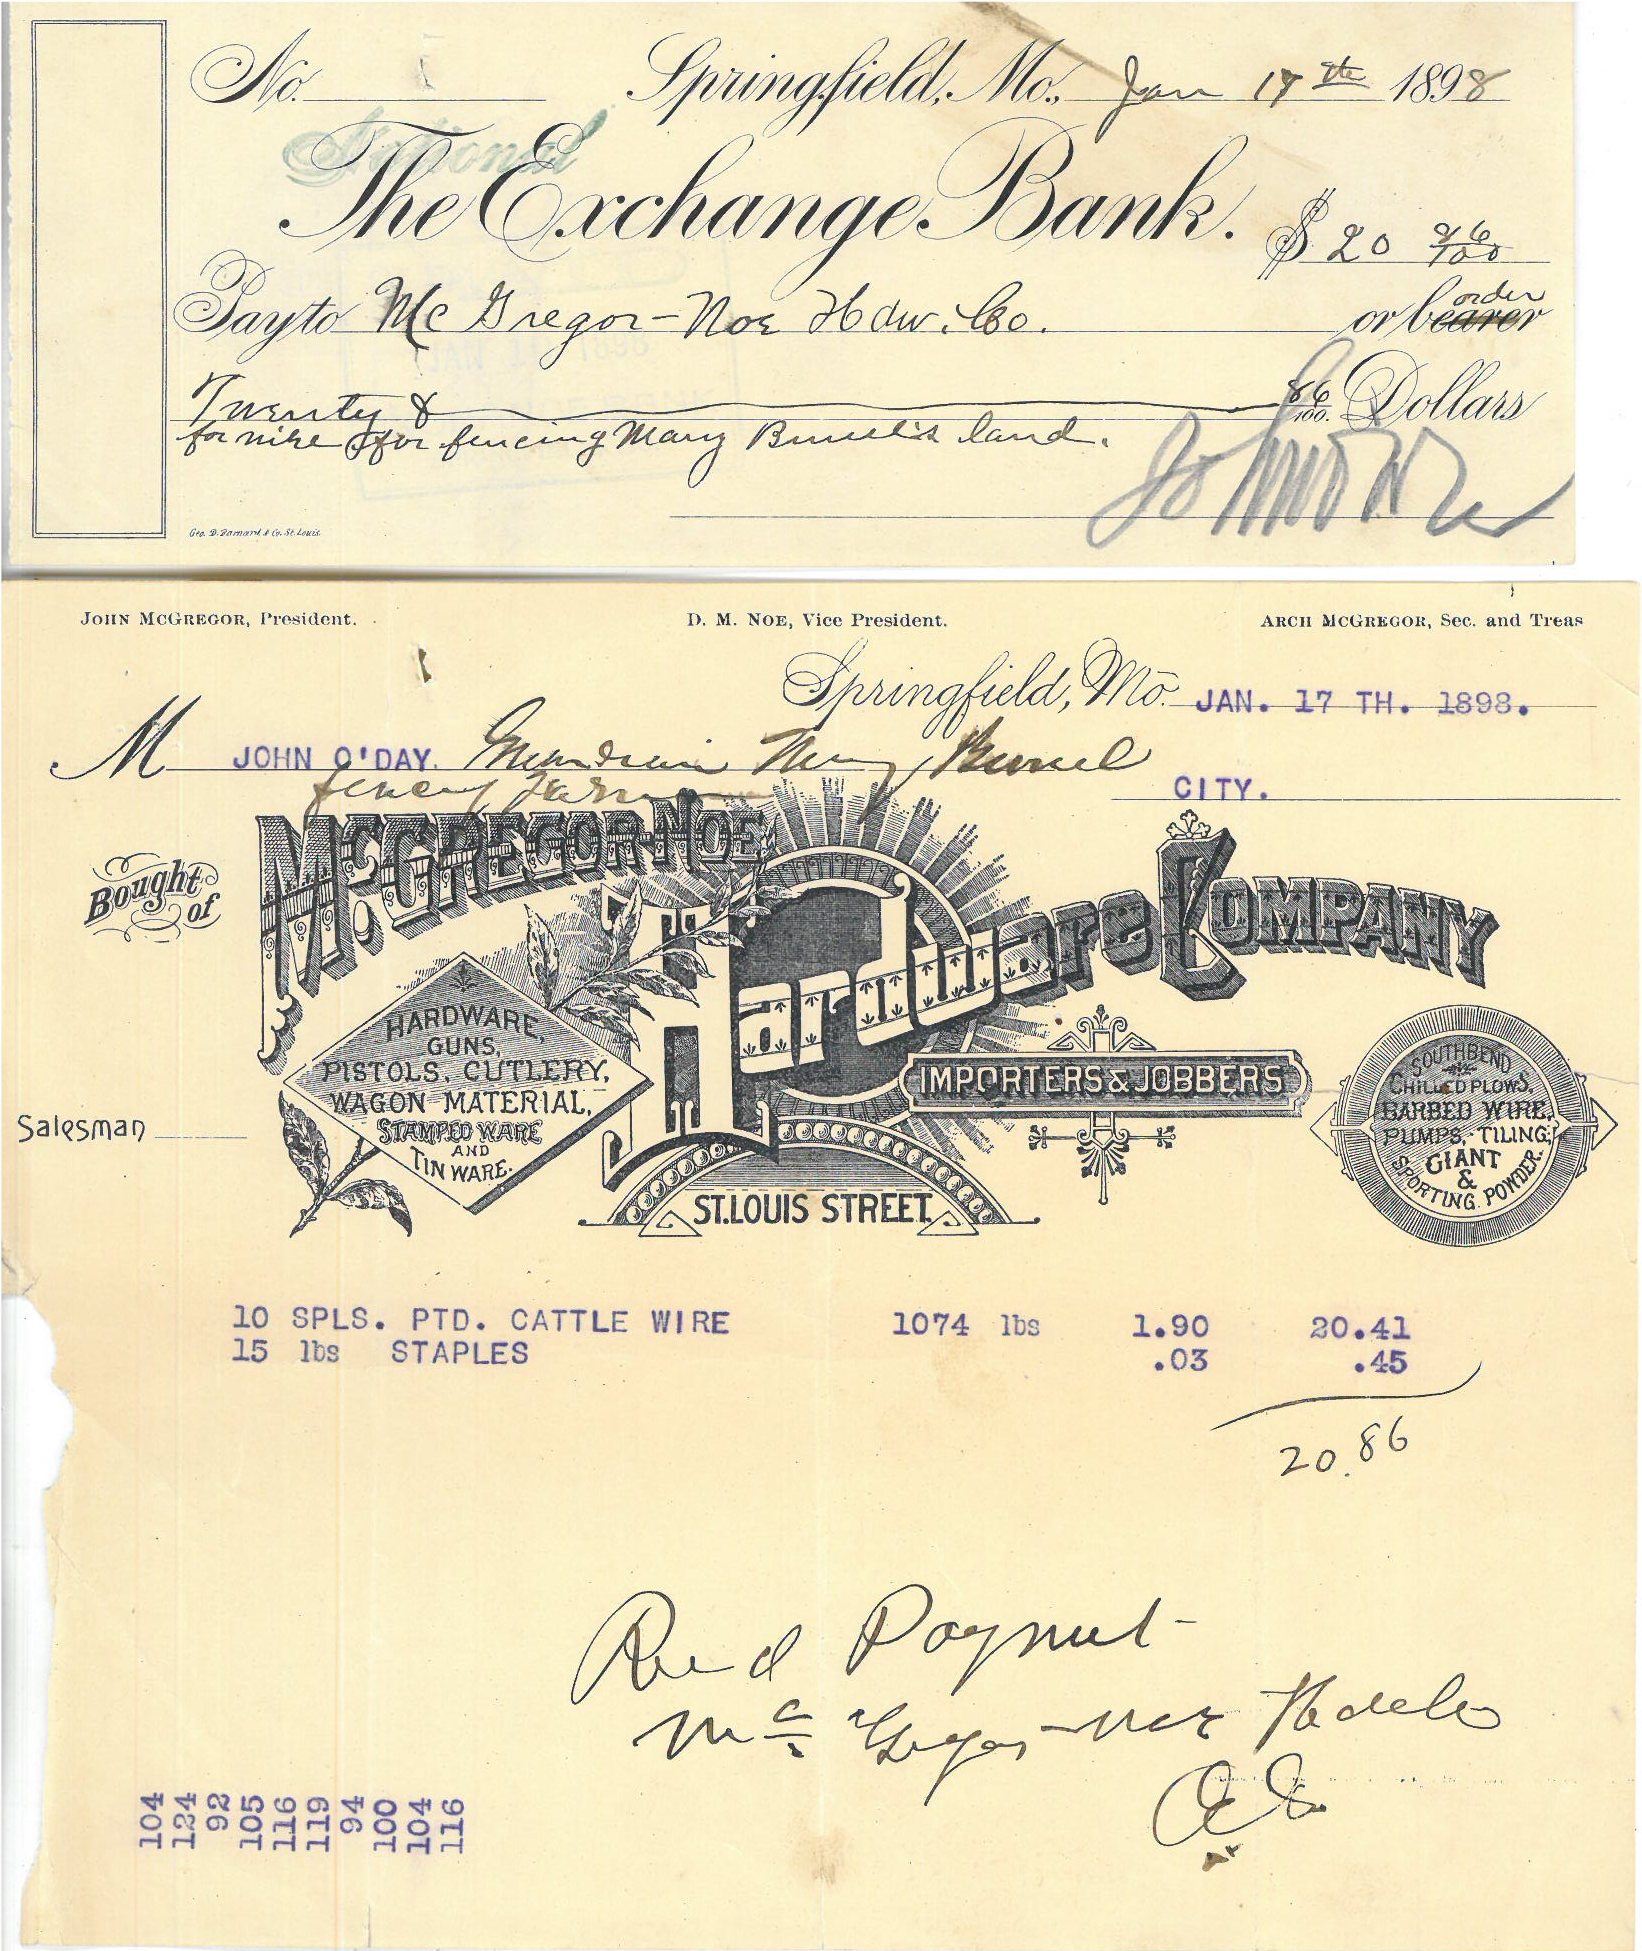 No. Springfield, Mo., Jan 17th 1898
National
The Exchange Bank.
$ 20 86/100
Pay to Mc Gregor-Noe Hdw. Co. or bearer order
Twenty & 86/100. Dollars
for wire for fencing Mary land.
Geo. D. Barnard & Co. St. Louis.
JOHN MCGREGOR, President. D. M. NOE, Vice President. ARCH MCGREGOR, Sec. and Treas
Springfield, Mo. JAN. 17 TH. 1898.
M JOHN O'DAY. Guardian Mary
CITY.
Bought of
MCGREGOR-NOE Hardware COMPANY
HARDWARE,
GUNS,
PISTOLS, CUTLERY,
WAGON MATERIAL,
STAMPED WARE
AND
TIN WARE.
IMPORTERS & JOBBERS
SOUTHBEND
CHILLED PLOWS,
BARBED WIRE,
PUMPS, TILING,
GIANT
&
SPORTING POWDER.
Salesman
ST. LOUIS STREET.
10 SPLS. PTD. CATTLE WIRE 1074 lbs 1.90 20.41
15 lbs STAPLES .03 .45
20.86
Recd Paymet
Mc Gregor-Noe Hdw Co
104
124
92
105
116
119
94
100
104
116